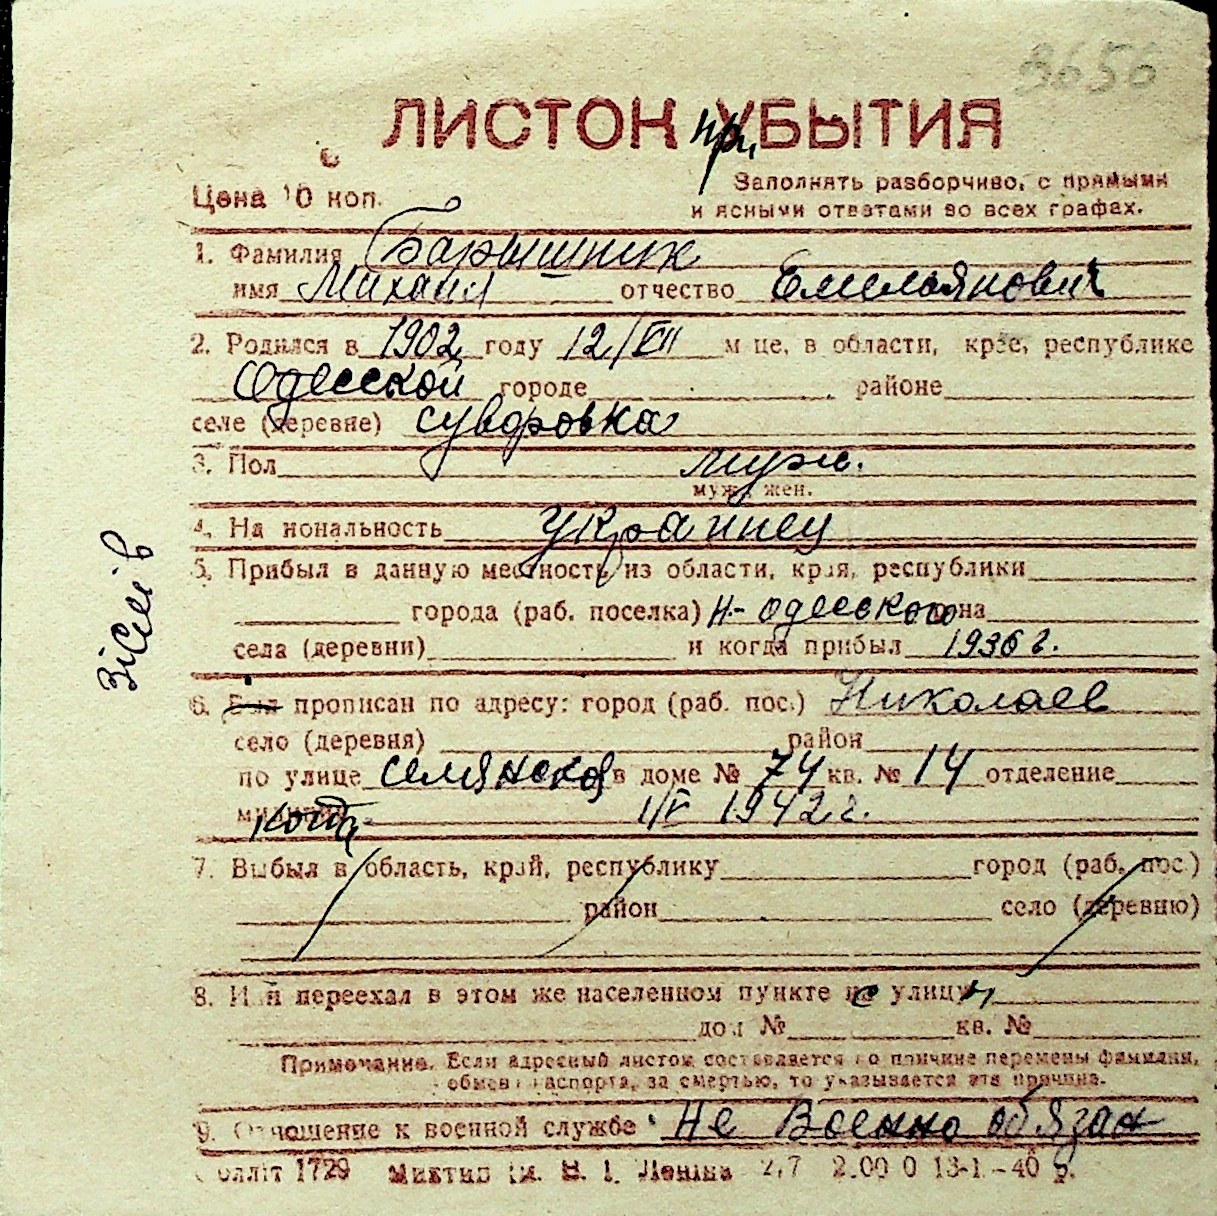 3656
ЛИСТОК при УБЫТИЯ
Цена 10 коп.
Заполнять разборчиво, с прямыми
и ясными ответами во всех графах.
1. Фамилия Барышник
имя Михаил отчество Емельянович
2. Родился в 1902 году 12/XII м-це, в области, крае, республике
Одесской городе районе
селе (деревне) Суворовка
3. Пол муж.
муж., жен.
4. Национальность украинец
5. Прибыл в данную местность из области, края, республики
города (раб. поселка) Н-Одесского она
села (деревни) и когда прибыл 1936 г.
6. Был прописан по адресу: город (раб. пос.) Николаев
село (деревня) район
по улице в доме № 74 кв. № 14 отделение
милиции когда 1942 г.
7. Выбыл в область, край, республику город (раб. пос.)
район село (деревню)
8. Или переехал в этом же населенном пункте на улицу
дом № кв. №
Примечание. Если адресный листок составляется по причине перемены фамилии,
обмена паспорта, за смертью, то указывается эта причина.
9. Отношение к военной службе Не Военно обязан
1729 ім. В. І. Леніна 2.00 0 13-1-40 р.